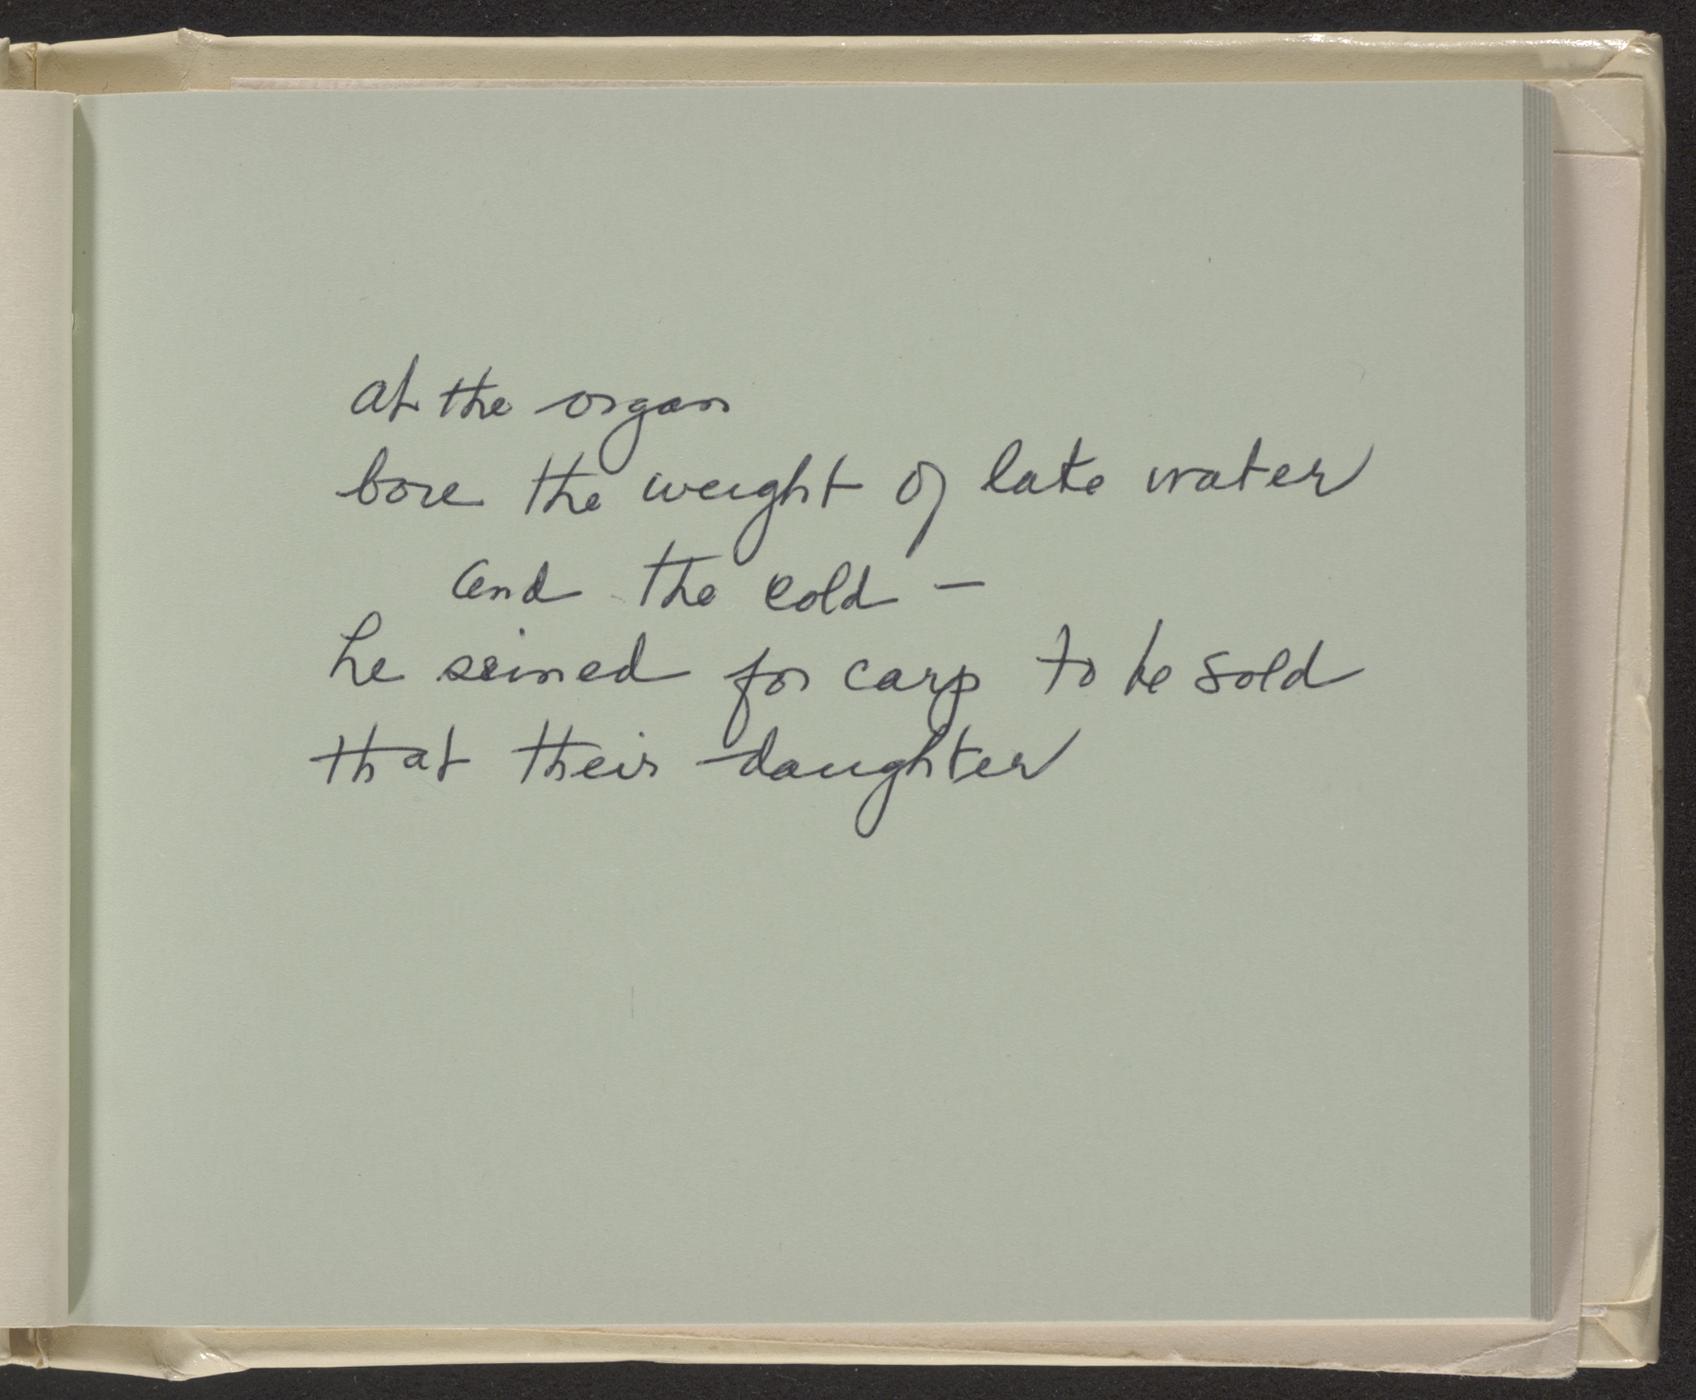 at the organ
bore the weight of lake water
and the cold —
he seined for carp to be sold
that their daughter